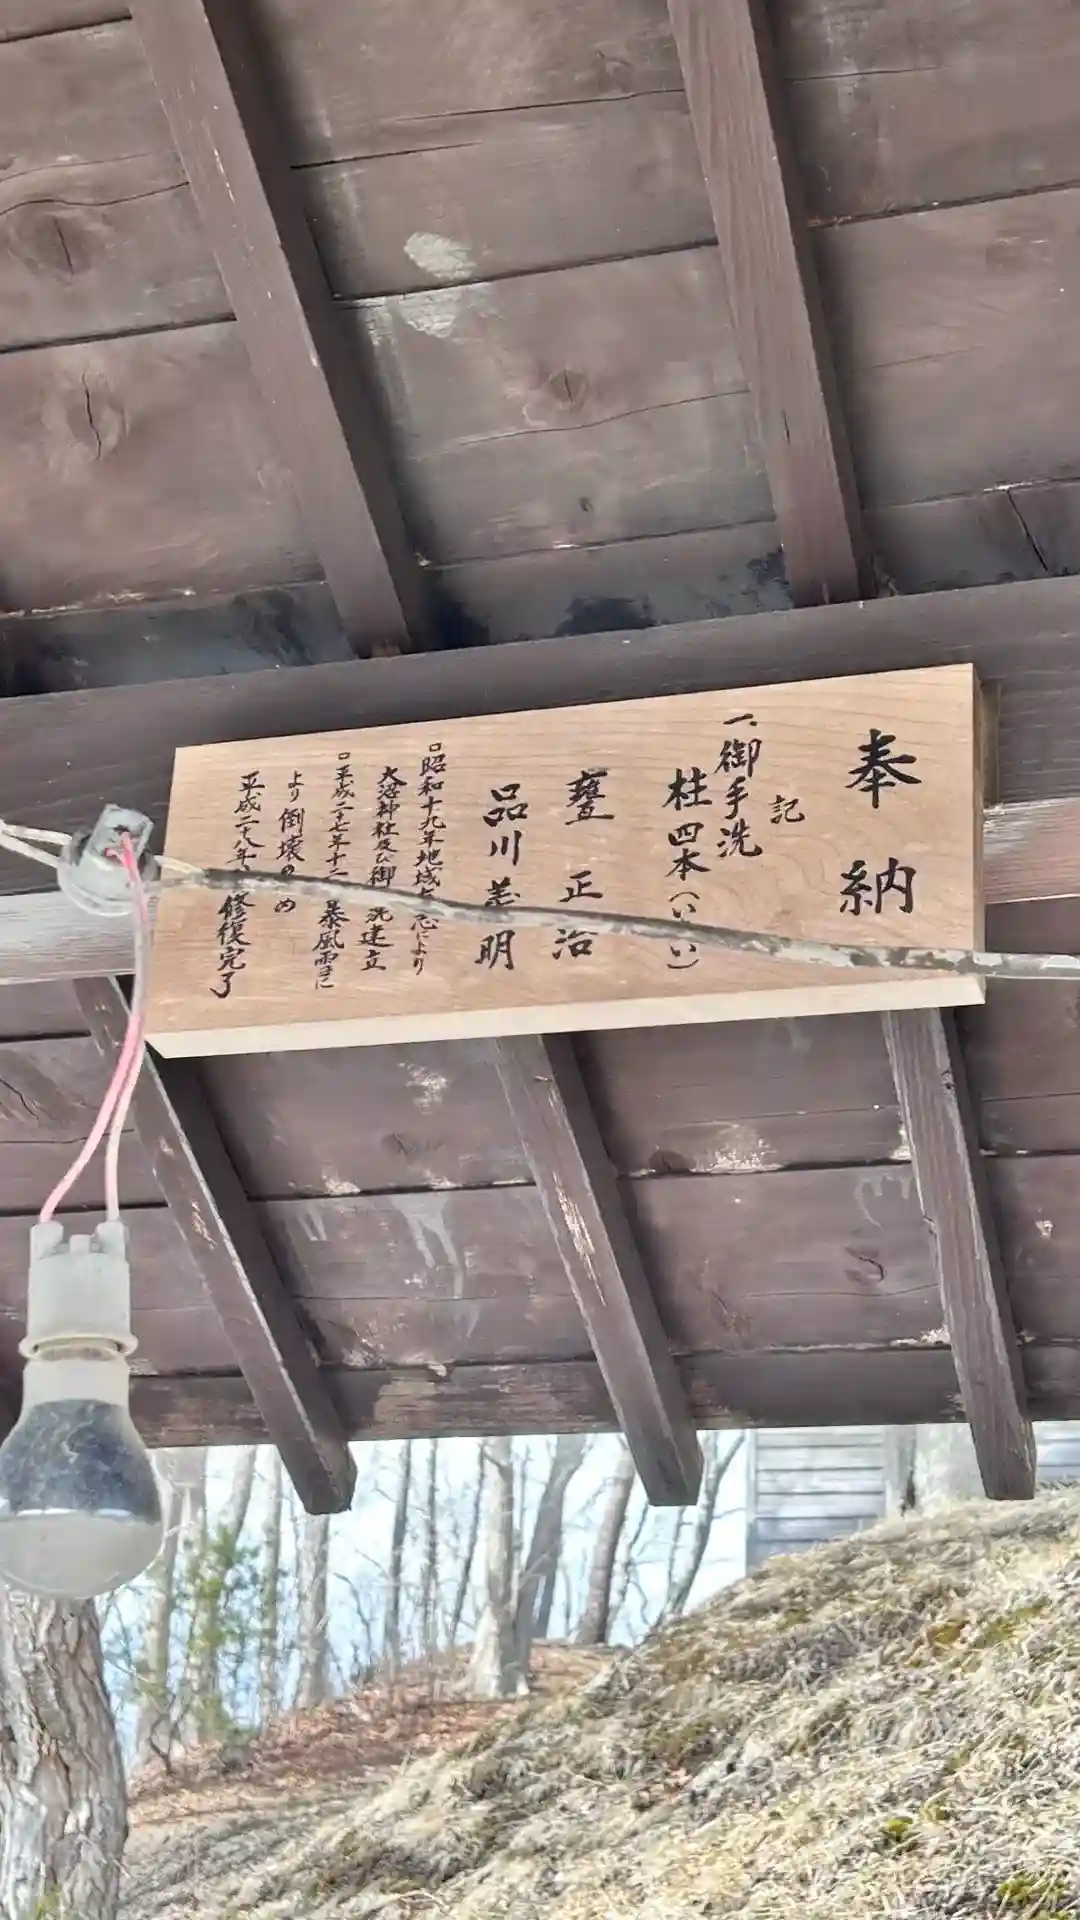 奉納
記
一、御手洗
柱四本(いい)
甕 正治
品川 明
昭和十九年地域 により
大沼神社及び御 洗建立
平成二十七年十二 暴風雪に
より倒壊の め
平成二十八年 修復完了